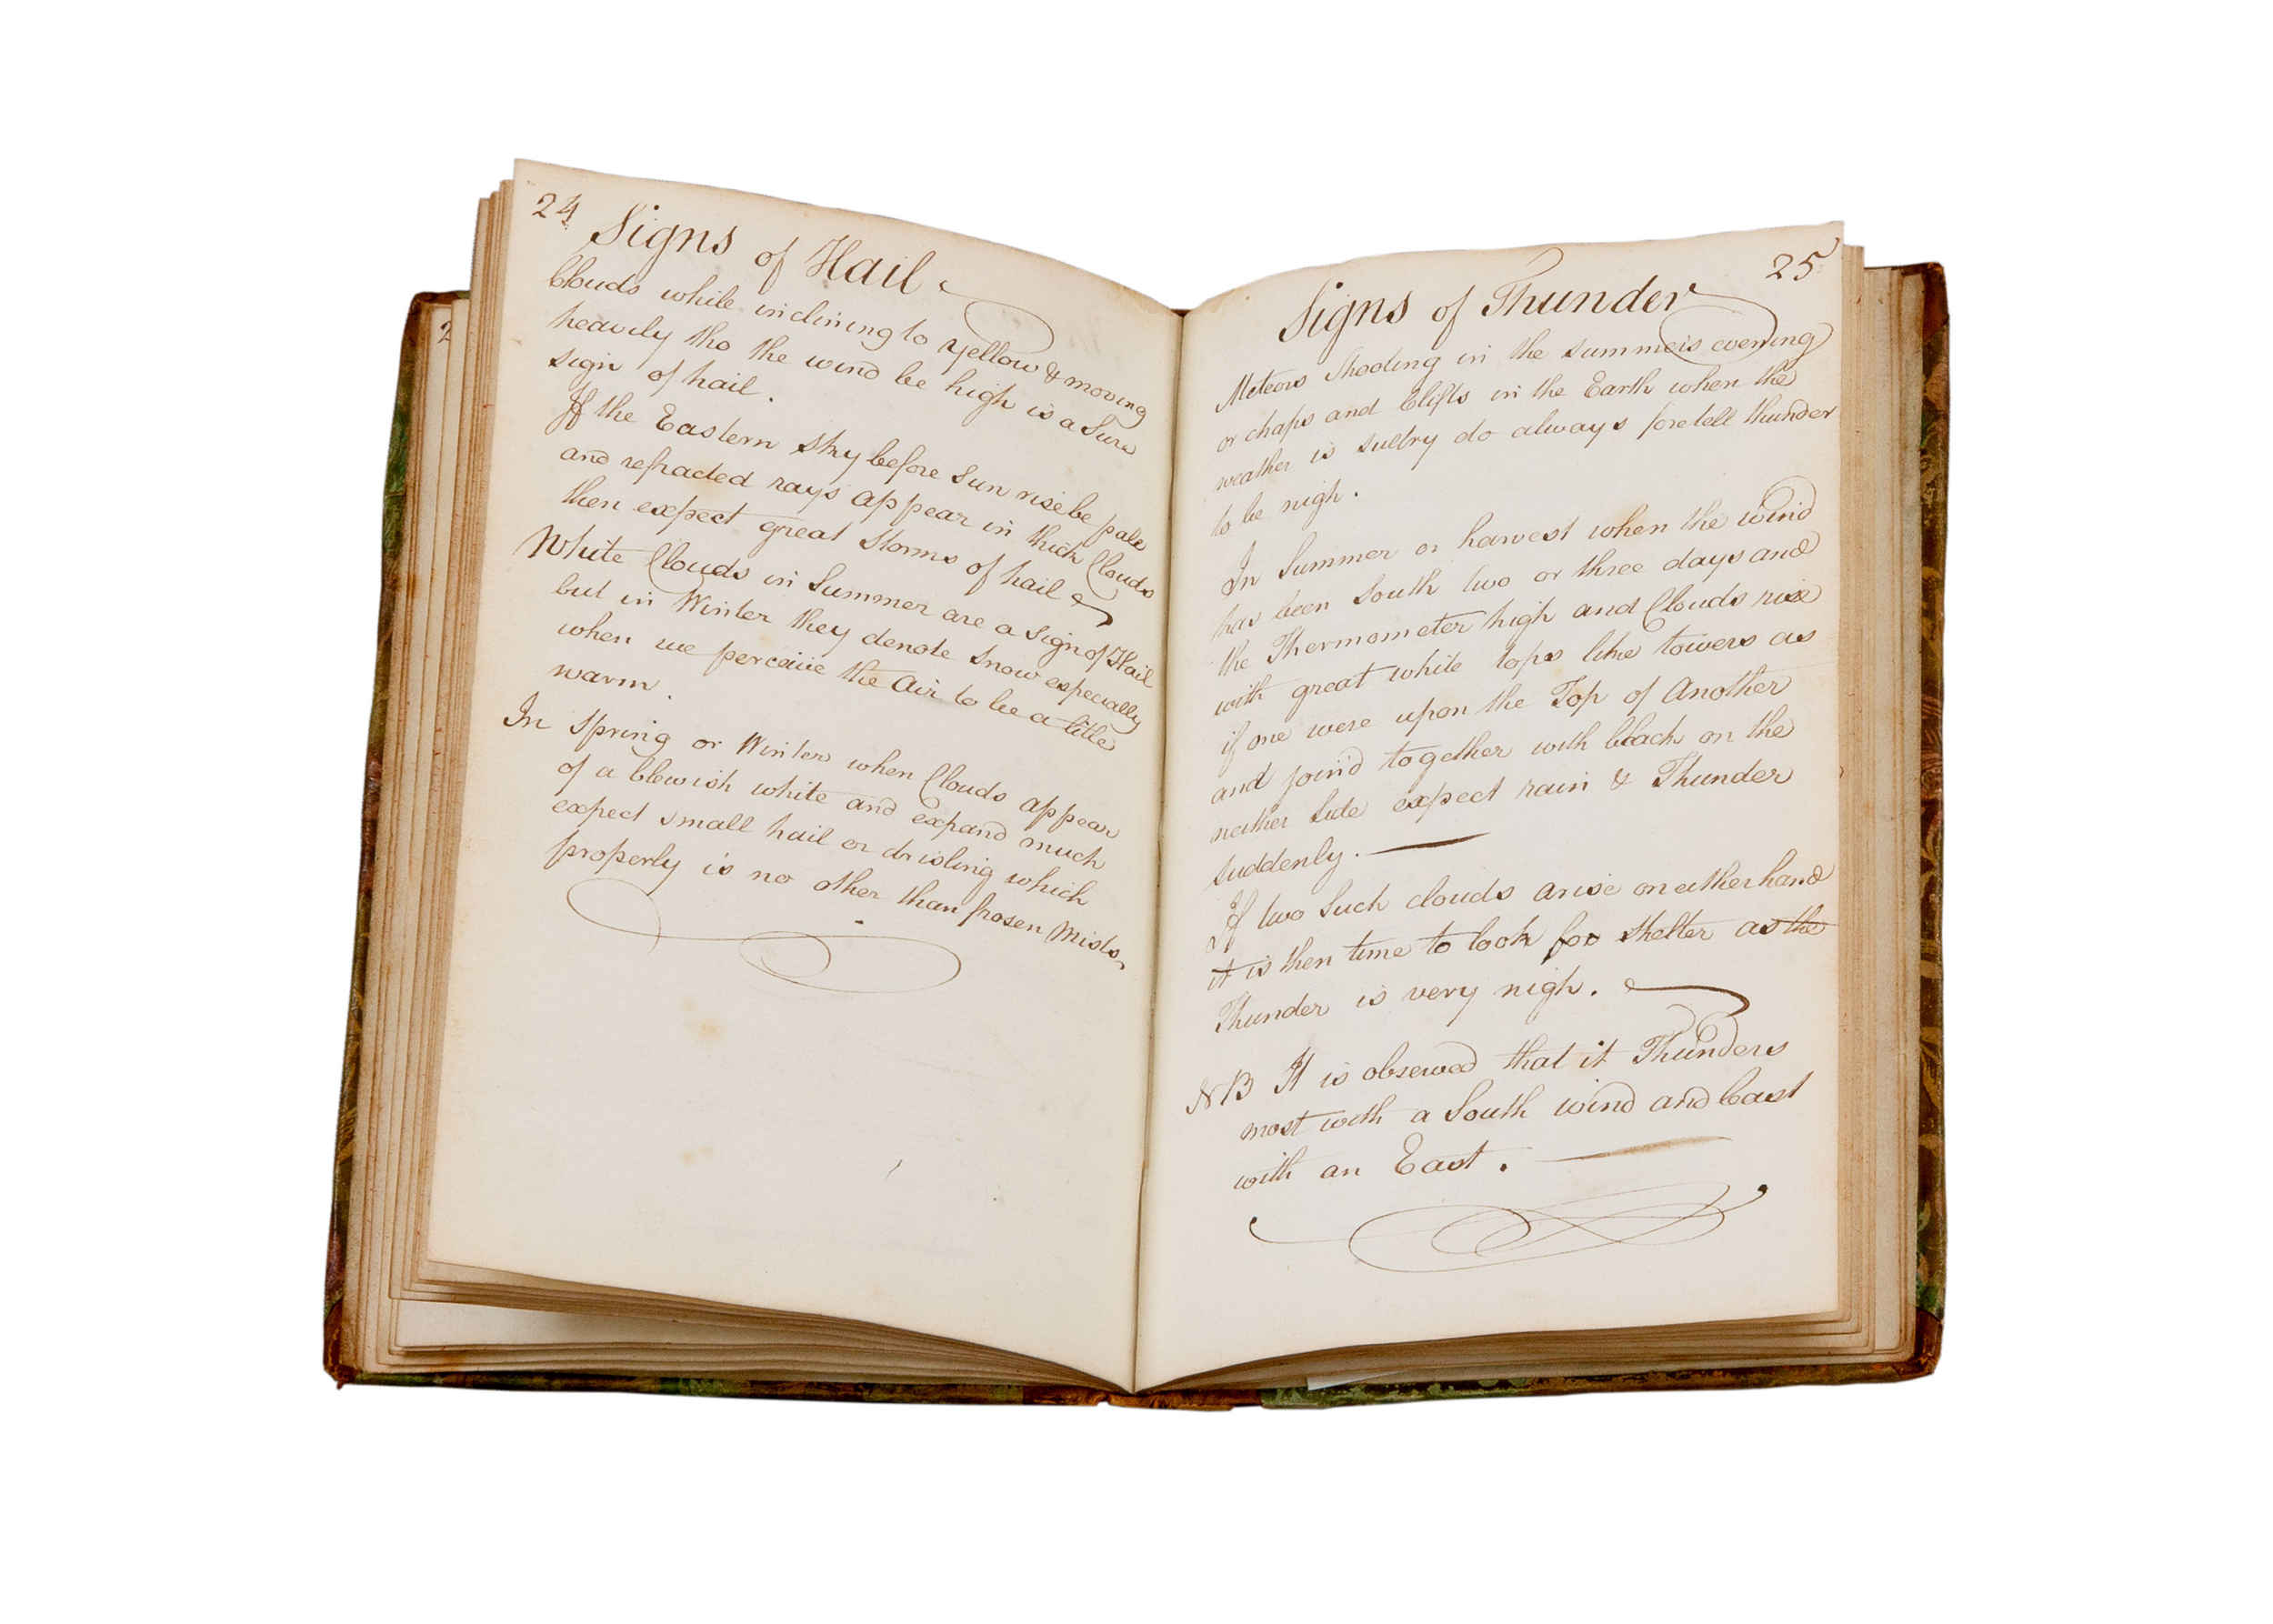 24
Signs of Hail
Clouds while inclining to yellow & moving
heavily tho the wind be high is a Sure
sign of hail.
If the Eastern sky before Sun rise be pale
and refracted rays appear in thick Clouds
then expect great Storms of hail
White Clouds in Summer are a sign of Hail
but in Winter they denote snow especially
when we perceive the Air to be a little
warm.
In Spring or Winter when Clouds appear
of a blewish white and expand much
expect small hail or drisling which
properly is no other than frosen Mists
2
25
Signs of Thunder
Meteors Shooting in the summers evening
or chaps and Clifts in the Earth when the
weather is sultry do always foretell thunder
to be nigh.
In Summer or harvest when the wind
has been South two or three days and
the Thermometer high and Clouds rise
with great white tops like towers as
if one were upon the Top of Another
and joind together with black on the
neither Side expect rain & Thunder
suddenly.
If two Such clouds arise on either hand
it is then time to look for shelter as the
Thunder is very nigh.
NB It is observed that it Thunders
most with a South wind and least
with an East.